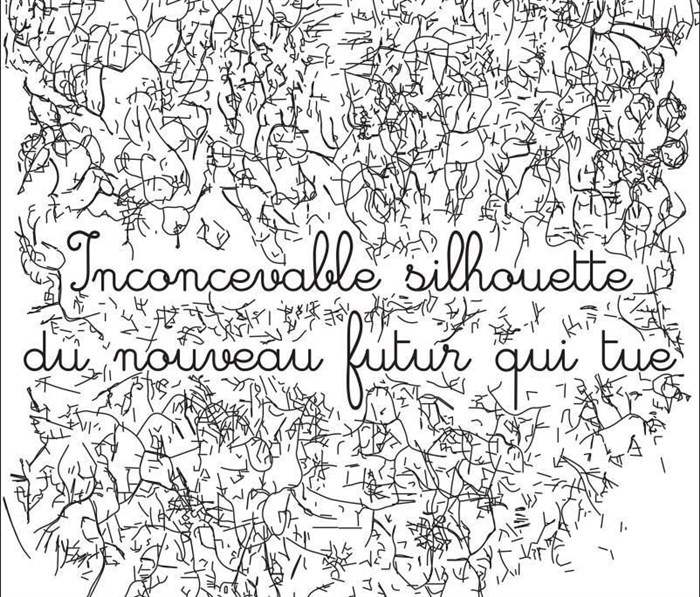 Inconcevable silhouette
du nouveau futur qui tue